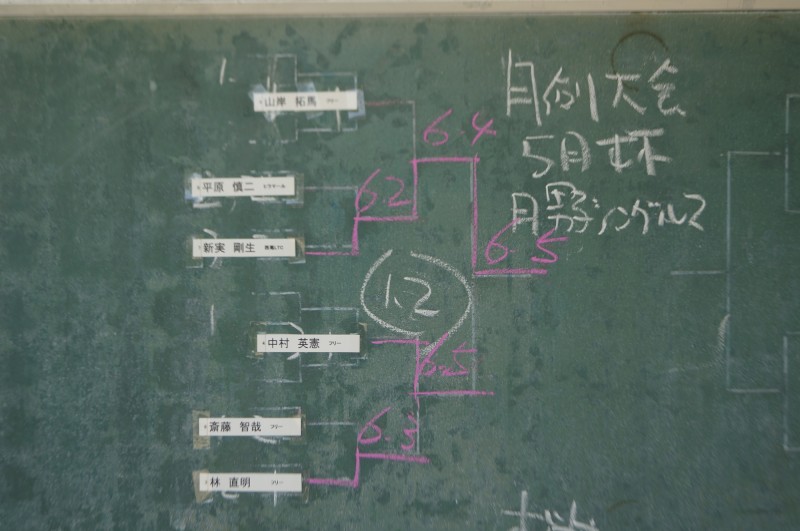 月例大会
5月杯
男子シングルス
1.
山岸 拓馬 フリー
6.4
平原 慎二
6 2
新実 剛生
6.5
1.2
中村 英憲 フリー
6.5
斎藤 智哉 フリー
6.3
林 直明 フリー